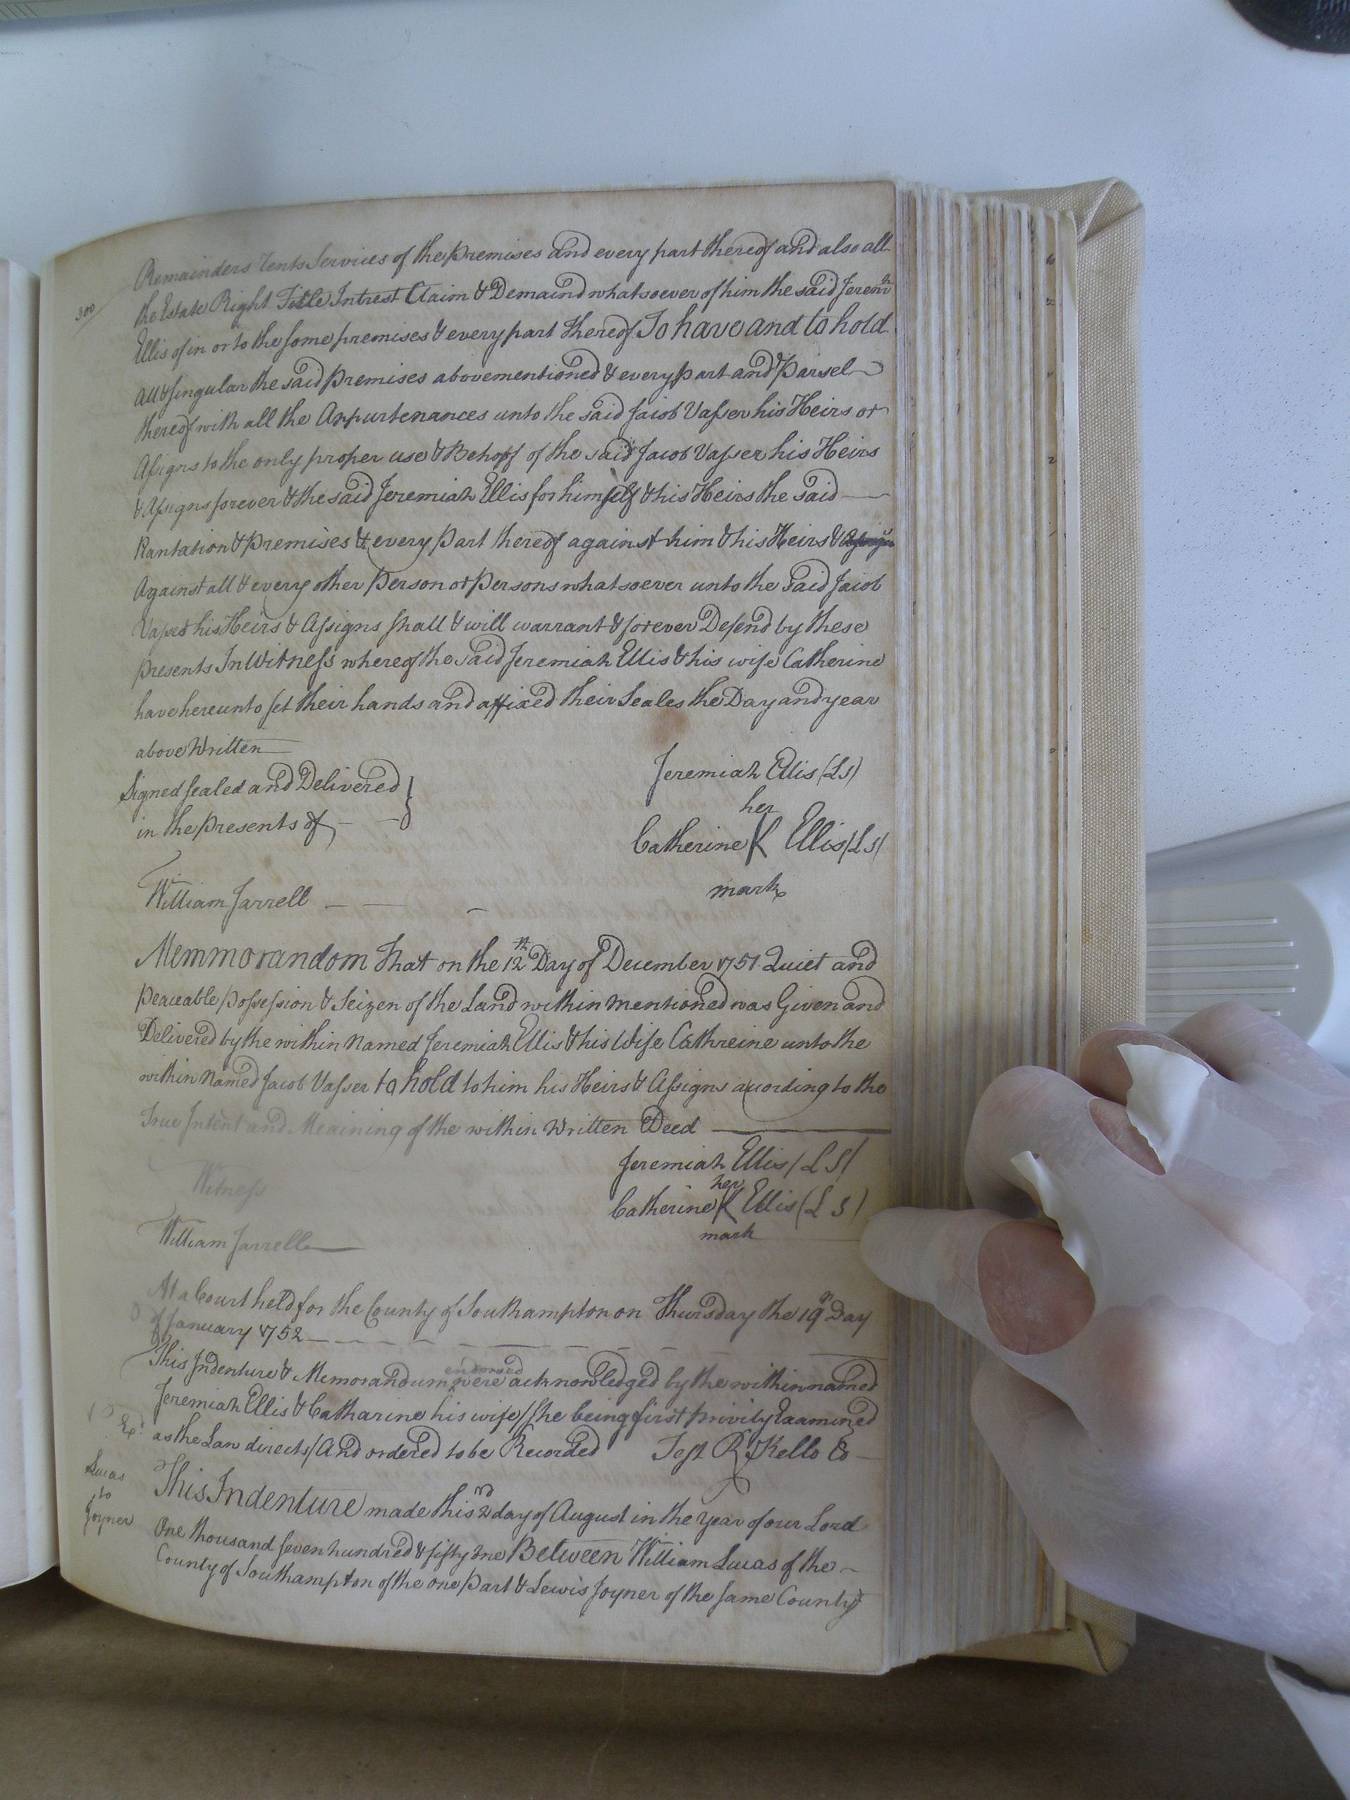 300
Remainders rents Services of the premises and every part thereof and also all
the Estate Right Title Intrest Claim & Demaind whatsoever of him the said Jerem.h
Ellis of in or to the some premises & every part thereof To have and to hold
all & singular the said premises abovementioned & every part and Parsel
thereof with all the Appurtenances unto the said Jacob Vasser his Heirs or
Assigns to the only proper use & Behoff of the said Jacob Vasser his Heirs
& Assigns forever & the said Jeremiah Ellis for himself & his Heirs the said
Plantation & premises & every Part thereof against him & his Heirs &
Against all & every other Person or Persons whatsoever unto the said Jacob
Vasser his Heirs & Assigns shall & will warrant & forever Defend by these
presents In Witness whereof the said Jeremiah Ellis & his wife Catherine
have hereunto set their hands and affixed their Seales the Day and year
above Written
Signed sealed and Delivered
in the presents of
Jeremiah Ellis (LS)
her
Catherine K Ellis (LS)
mark
William Jarrell
Memmorandom That on the 12th Day of December 1751 Quiet and
peaceable possession & Seizen of the Land within mentioned was Given and
Delivered by the within Named Jeremiah Ellis & his Wife Cathreine unto the
within Named Jacob Vasser to hold to him his Heirs & Assigns acording to the
True Intent and Meaining of the within Written Deed
Jeremiah Ellis (LS)
her
Catherine K Ellis (LS)
mark
Witness
William Jarrell
At a Court held for the County of Southampton on Thursday the 19th Day
of January 1752
This Indenture & Memorandum endorsed were acknowledged by the within named
Jeremiah Ellis & Catharine his wife (she being first privily Examined
as the Law directs) And ordered to be Recorded Test R Kello Co
Ex.d
Lucas
to
Joyner
This Indenture made this 2nd day of August in the Year of our Lord
One thousand seven hundred & fifty One Between William Lucas of the
County of Southampton of the one Part & Lewis Joyner of the same County